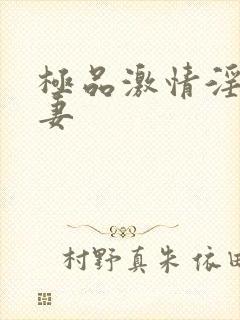 極品激情淫
妻
村野真朱 依田